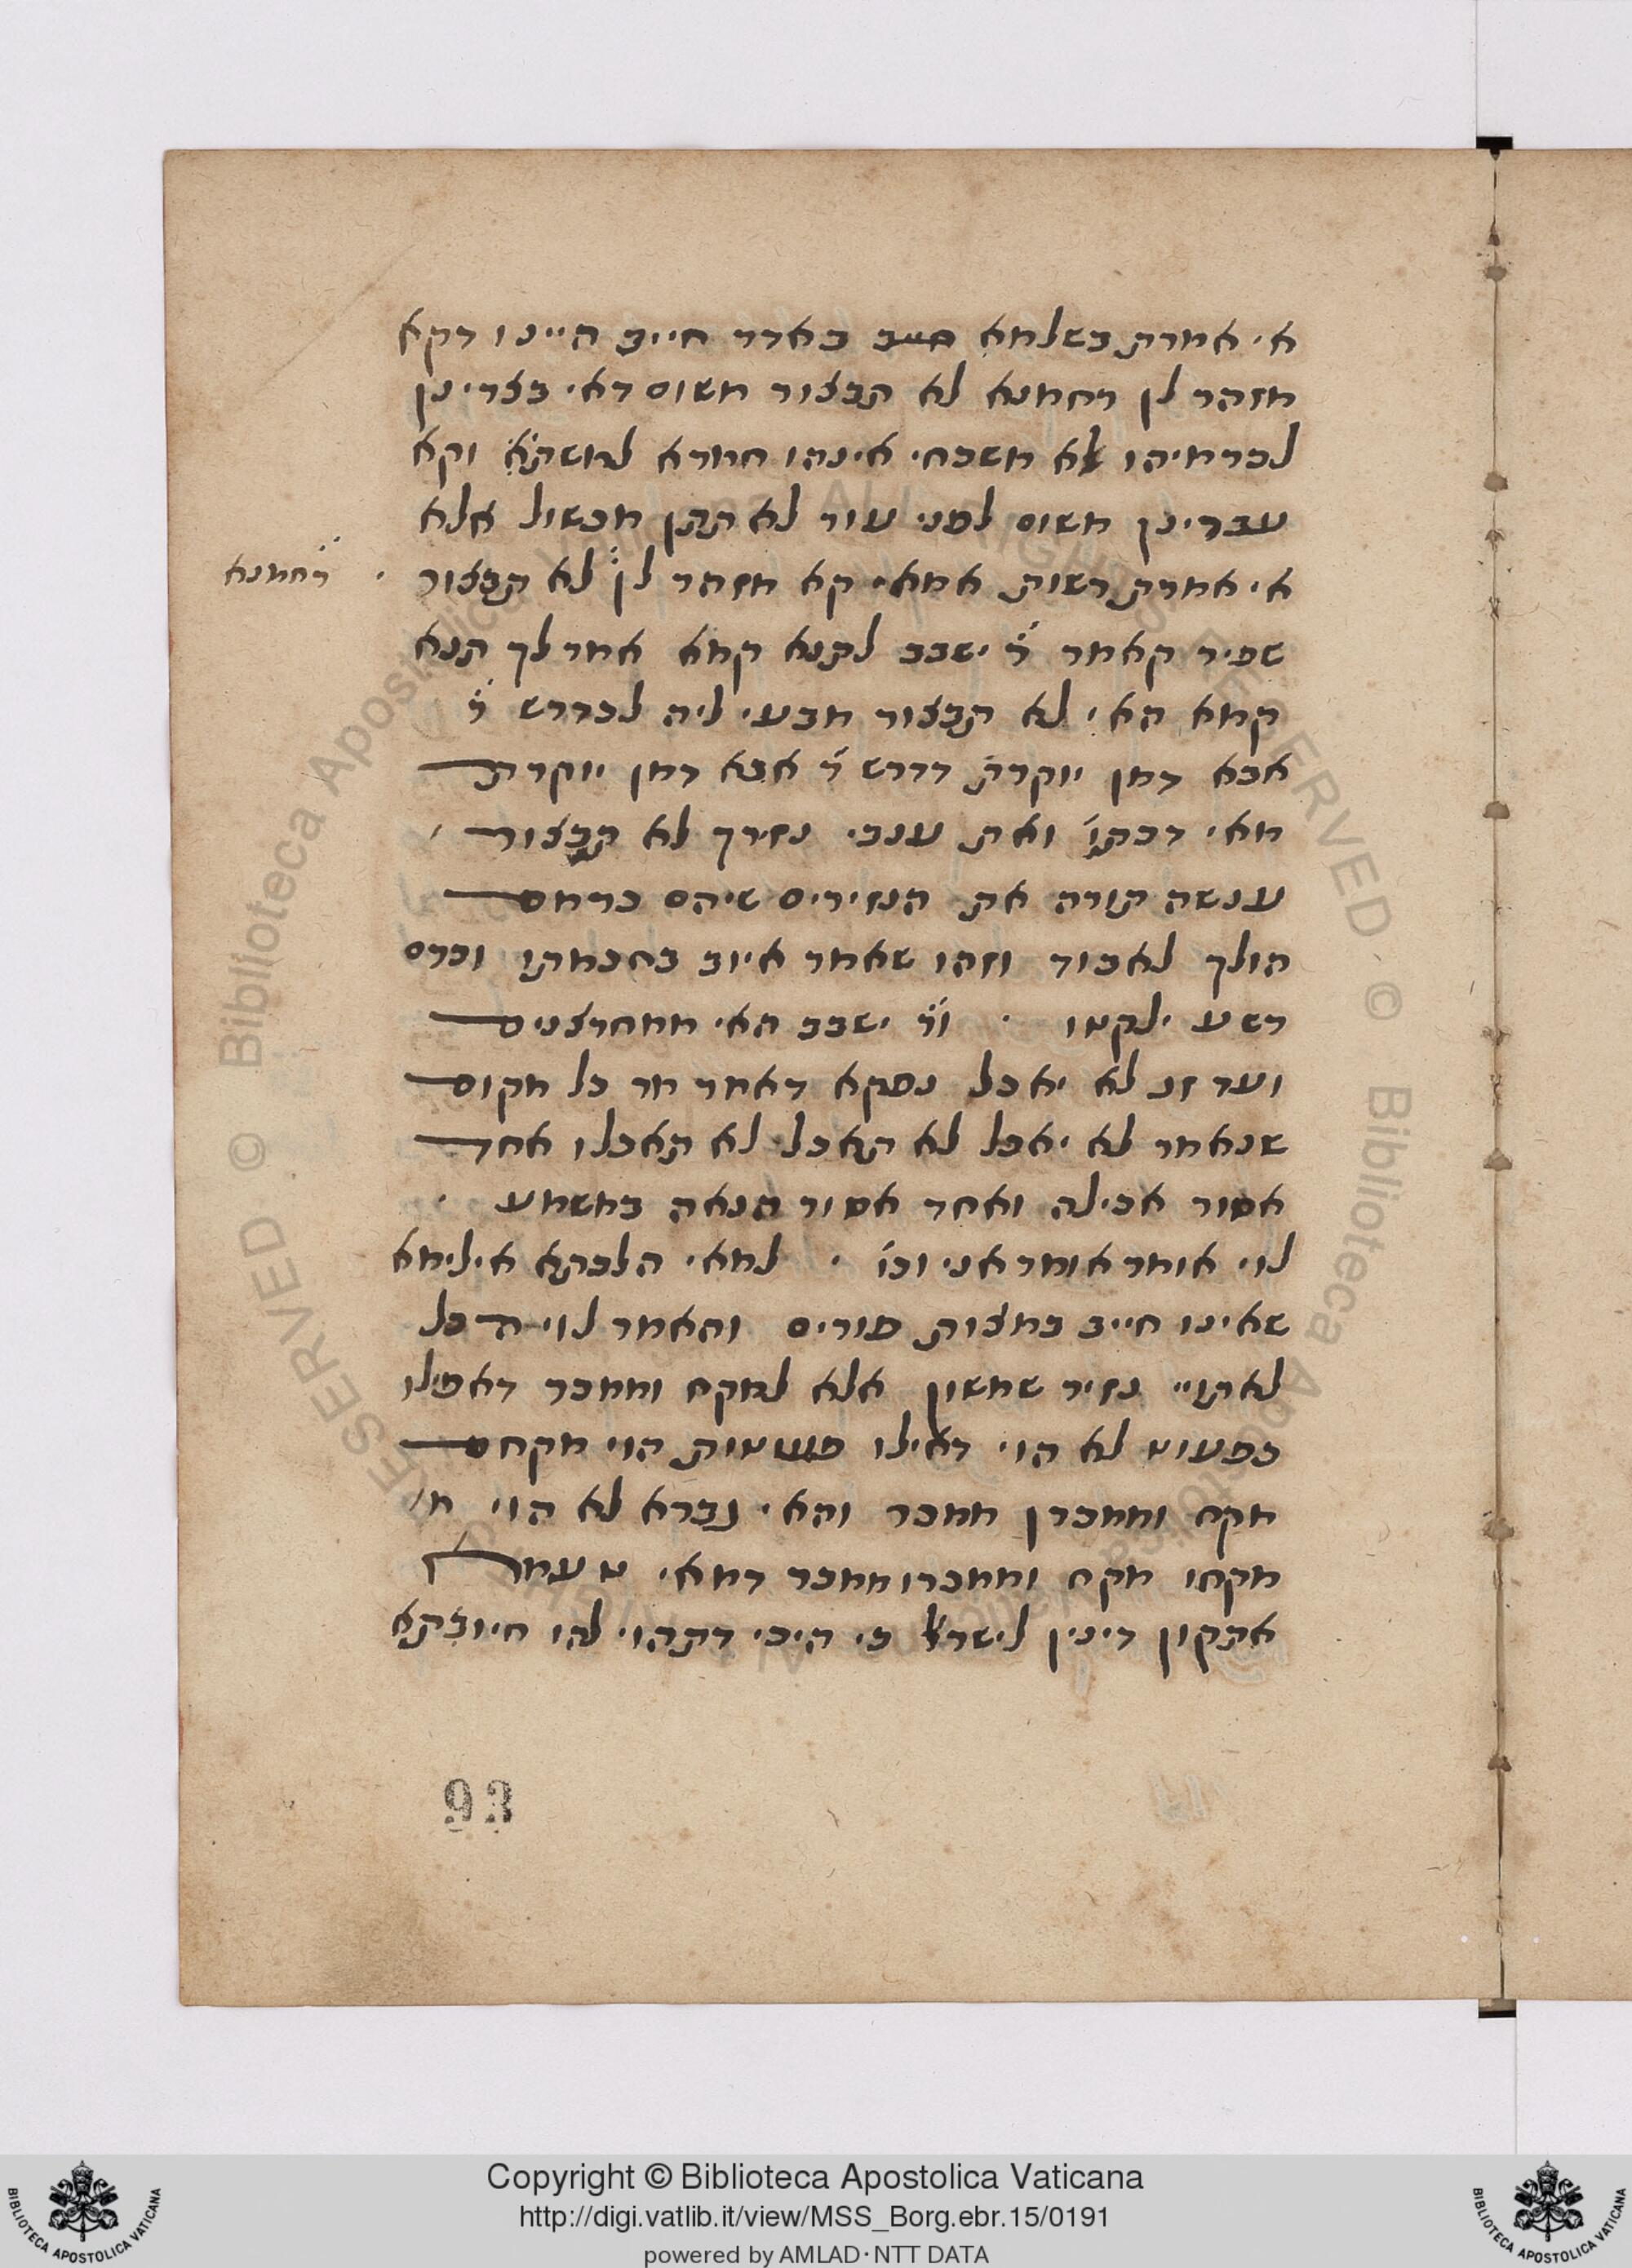 אי אמרת בשלמא חייב באדר חייב היינו דקא
מזהר לן רחמנא לא תבצור משום דאי בצרינן
לכרמיהו לא משכחי אינהו חמרא למשתא וקא
עברינן משום לפני עור לא תתן מכשול אלא
אי אמרת רשות אמאי קא מזהר לן לא תבצור
רחמנא
שפיר קאמר ר׳ ישבב לתנא קמא אמר לך תנא
קמא האי לא תבצור מבעי ליה לכדרש ר׳
אבא דמן יוקרת דדרש ר׳ אבא דמן יוקרת
מאי דכת׳ ואת ענבי נזירך לא תבצור
ענשה תורה את הנזירים שיהם כרמם
הולך לאבוד וזהו שאמר איוב בחכמתו וכרם
רשע ילקטו . ור׳ ישבב האי ממחרצנים
ועד זג לא יאכל נפקא דאמר מר כל מקום
שנאמר לא יאכל לא תאכל לא תאכלו אחד
אסור אכילה ואחד אסור הנאה במשמע .
לוי אומר אומר אני וכו׳ . למאי הלכתא אילימא
שאינו חייב במצות פורים והאמר לוי הכל
לאתויי נזיר שמשון אלא למקח וממכר דאפילו
כפעוט לא הוי דאילו פעוטות הוי מקחם
מקח וממכרן ממכר והאי גברא לא הוי מ
מקחו מקח וממכרו ממכר דמאי טעמא
אתקון דינין לישראל כי היכי דתהוי להו חיותא
Copyright © Biblioteca Apostolica Vaticana
http://digi.vatlib.it/view/MSS_Borg.ebr.15/0191
powered by AMLAD·NTT DATA
93